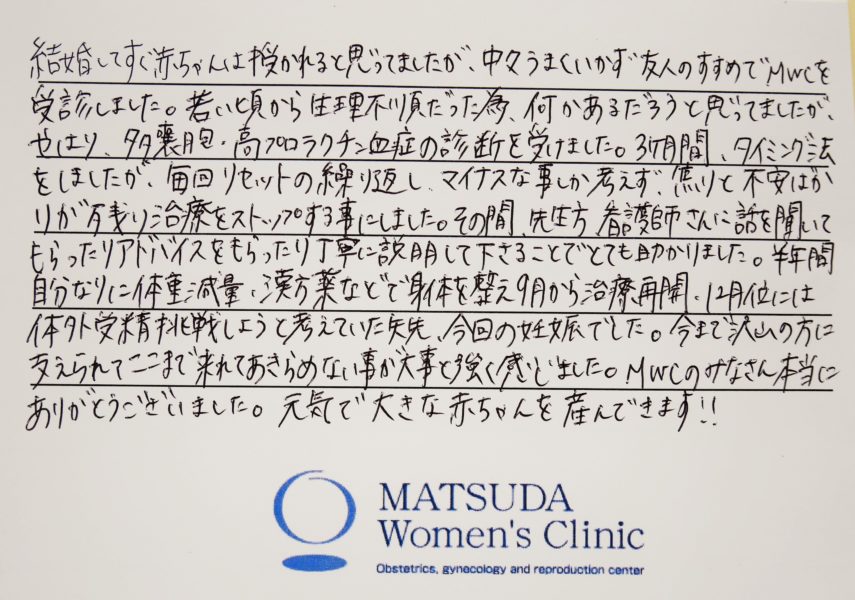 結婚してすぐ赤ちゃんは授かれると思ってましたが、中々うまくいかず友人のすすめでMWCを
受診しました。若い頃から生理不順だった為、何かあるだろうと思ってましたが、
やはり、多嚢胞・高プロラクチン血症の診断を受けました。3ヶ月間、タイミング法
をしましたが、毎回リセットの繰り返し、マイナスな事しか考えず、焦りと不安ばか
りが残り治療をストップする事にしました。その間、先生方、看護師さんに話を聞いて
もらったりアドバイスをもらったり丁寧に説明して下さることでとても助かりました。半年間
自分なりに体重減量・漢方薬などで身体を整え9月から治療再開、12月位には
体外受精挑戦しようと考えていた矢先、今回の妊娠でした。今まで沢山の方に
支えられてここまで来れてあきらめない事が大事と強く感じました。MWCのみなさん本当に
ありがとうございました。元気で大きな赤ちゃんを産んできます!!
MATSUDA
Women's Clinic
Obstetrics, gynecology and reproduction center